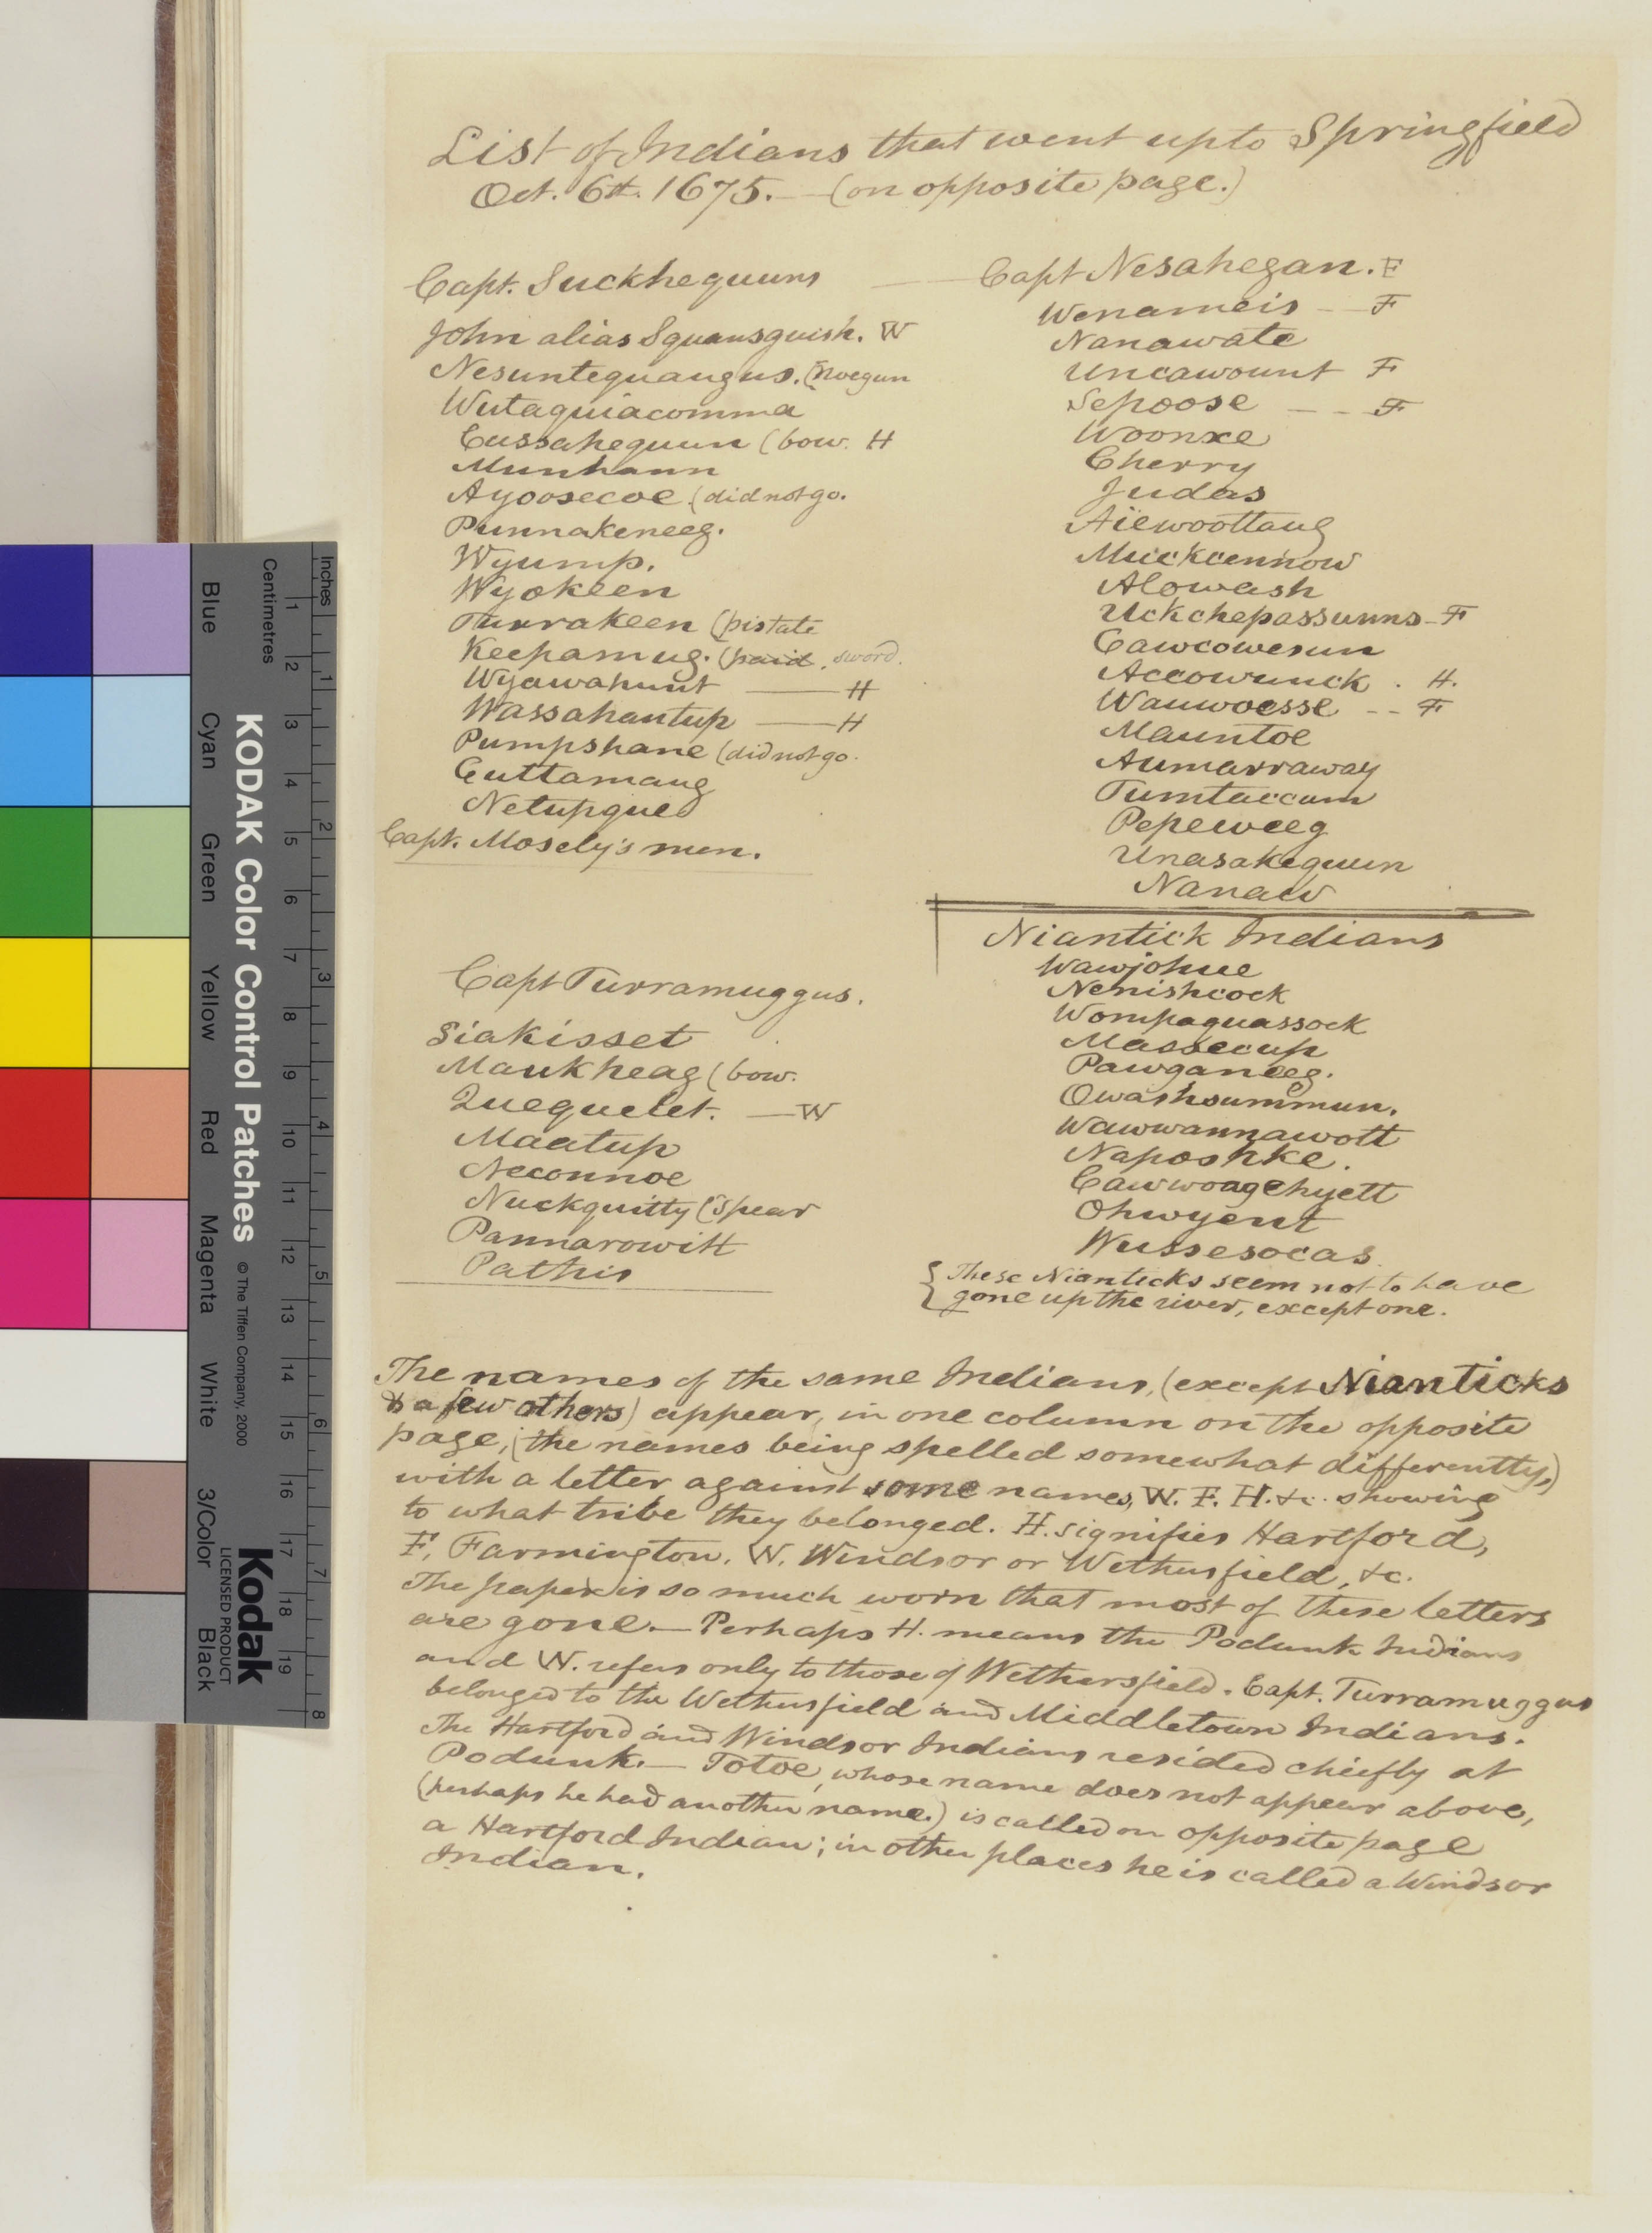 List of Indians that went up to Springfield
Oct. 6th. 1675. — (on opposite page.)
Capt. Suckhequuns
John alias Squansquish. W
Nesuntequaugus. (no gun
Wutaquiacomma
Cussahequun (bow. H
Munhann
Ayoosecoe (did not go.
Punnakeneeg.
Wyump.
Wyokeen
Turrakeen (pistate
Keepamug. (paid. sword.
Wyawahunt — H
Wassahantup — H
Pumpshane (did not go.
Cuttamaug
Netupque
Capt. Mosely's men.
Capt Turramuggus.
Siakisset
Maukheag (bow.
Quequelet. — W
Maatup
Neconnoe
Nuckquitty (spear
Pannarowitt
Pathis
Capt Nesahegan. F
Wenameis — F
Nanawate
Uncawount F
Sepoose — F
Woonxe
Cherry
Judas
Aiewoottaug
Muckcennow
Alowash
Uckchepassunns - F
Cawcowesun
Accowunck . H.
Wauwoesse - - F
Mauntoe
Aumarraway
Tumtaccum
Pepeweeg
Unasakequun
Nanaw
Niantick Indians
Wawjohue
Nenishcock
Wompaquassock
Massecup
Pawganeeg.
Owashsummun.
Wawwannawott
Naposhke.
Cawwoagchyett
Ohwyent
Wussesocas
{ These Nianticks seem not to have
gone up the river, except one.
The names of the same Indians, (except Nianticks
& a few others) appear, in one column on the opposite
page, (the names being spelled somewhat differently,)
with a letter against some names, W. F. H. &c. showing
to what tribe they belonged. H. signifies Hartford,
F. Farmington. W. Windsor or Wethersfield, &c.
The paper is so much worn that most of these letters
are gone. — Perhaps H. means the Podunk Indians
and W. refers only to those of Wethersfield. Capt. Turramuggus
belonged to the Wethersfield and Middletown Indians.
The Hartford and Windsor Indians resided chiefly at
Podunk. — Totoe, whose name does not appear above,
(perhaps he had another name.) is called on opposite page
a Hartford Indian; in other places he is called a Windsor
Indian.
Inches
Centimetres
1 2 3 4 5 6 7 8
1 2 3 4 5 6 7 8 9 10 11 12 13 14 15 16 17 18 19
KODAK Color Control Patches © The Tiffen Company, 2000
Kodak
LICENSED PRODUCT
Blue Cyan Green Yellow Red Magenta White 3/Color Black